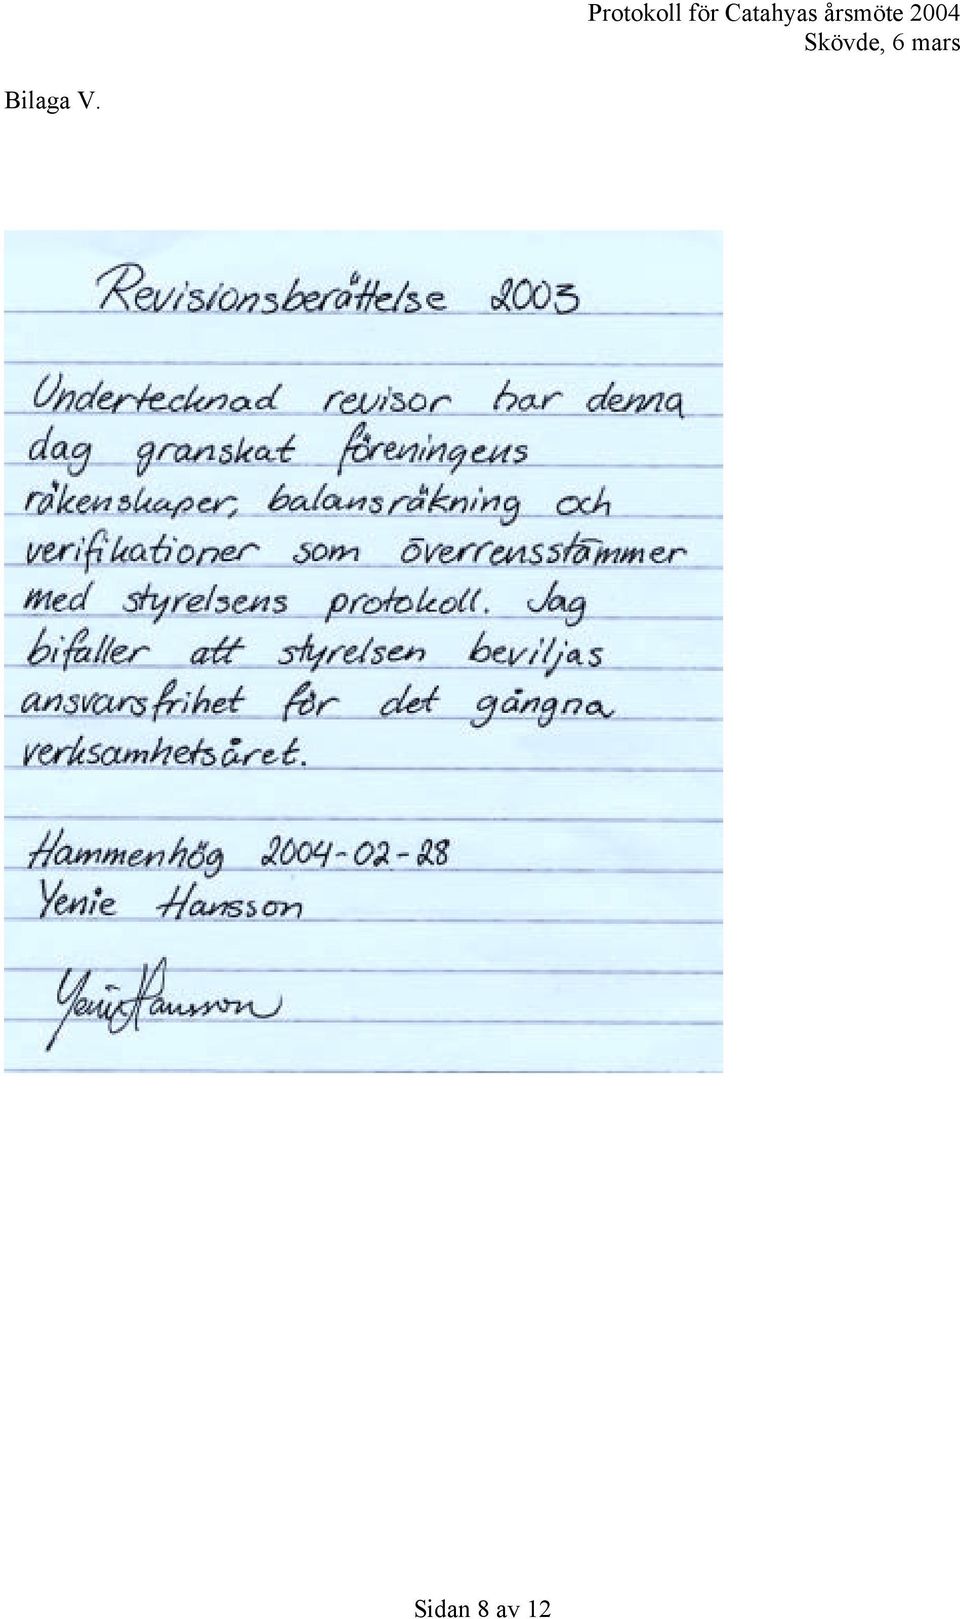 Protokoll för Catahyas årsmöte 2004
Skövde, 6 mars
Bilaga V.
Revisionsberättelse 2003
Undertecknad revisor har denna
dag granskat föreningens
räkenskaper, balansräkning och
verifikationer som överrensstämmer
med styrelsens protokoll. Jag
bifaller att styrelsen beviljas
ansvarsfrihet för det gångna
verksamhetsåret.
Hammenhög 2004-02-28
Yenie Hansson
Yenie Hansson
Sidan 8 av 12